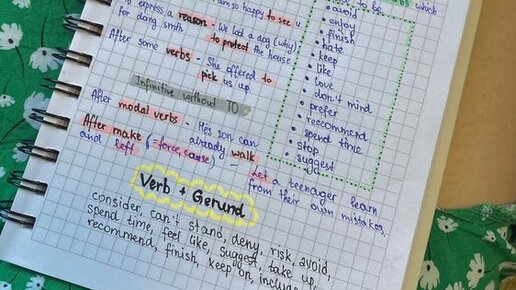 am so happy to see u
To express a reason - We had a dog (why)
for doing smth to protect the house
After some verbs - She offered to
pick us up
Infinitive without TO
After modal verbs - He's son can
already walk
After make (=force, cause) - Let a teenager learn
and left from their own mistakes
which
to be
• avoid
• enjoy
• finish
• hate
• keep
• like
• love
• don't mind
• prefer
• reccomend
• spend time
• stop
• suggest
Verb + Gerund
consider, can't stand, deny, risk, avoid,
spend time, feel like, suggest, take up,
recommend, finish, keep on,